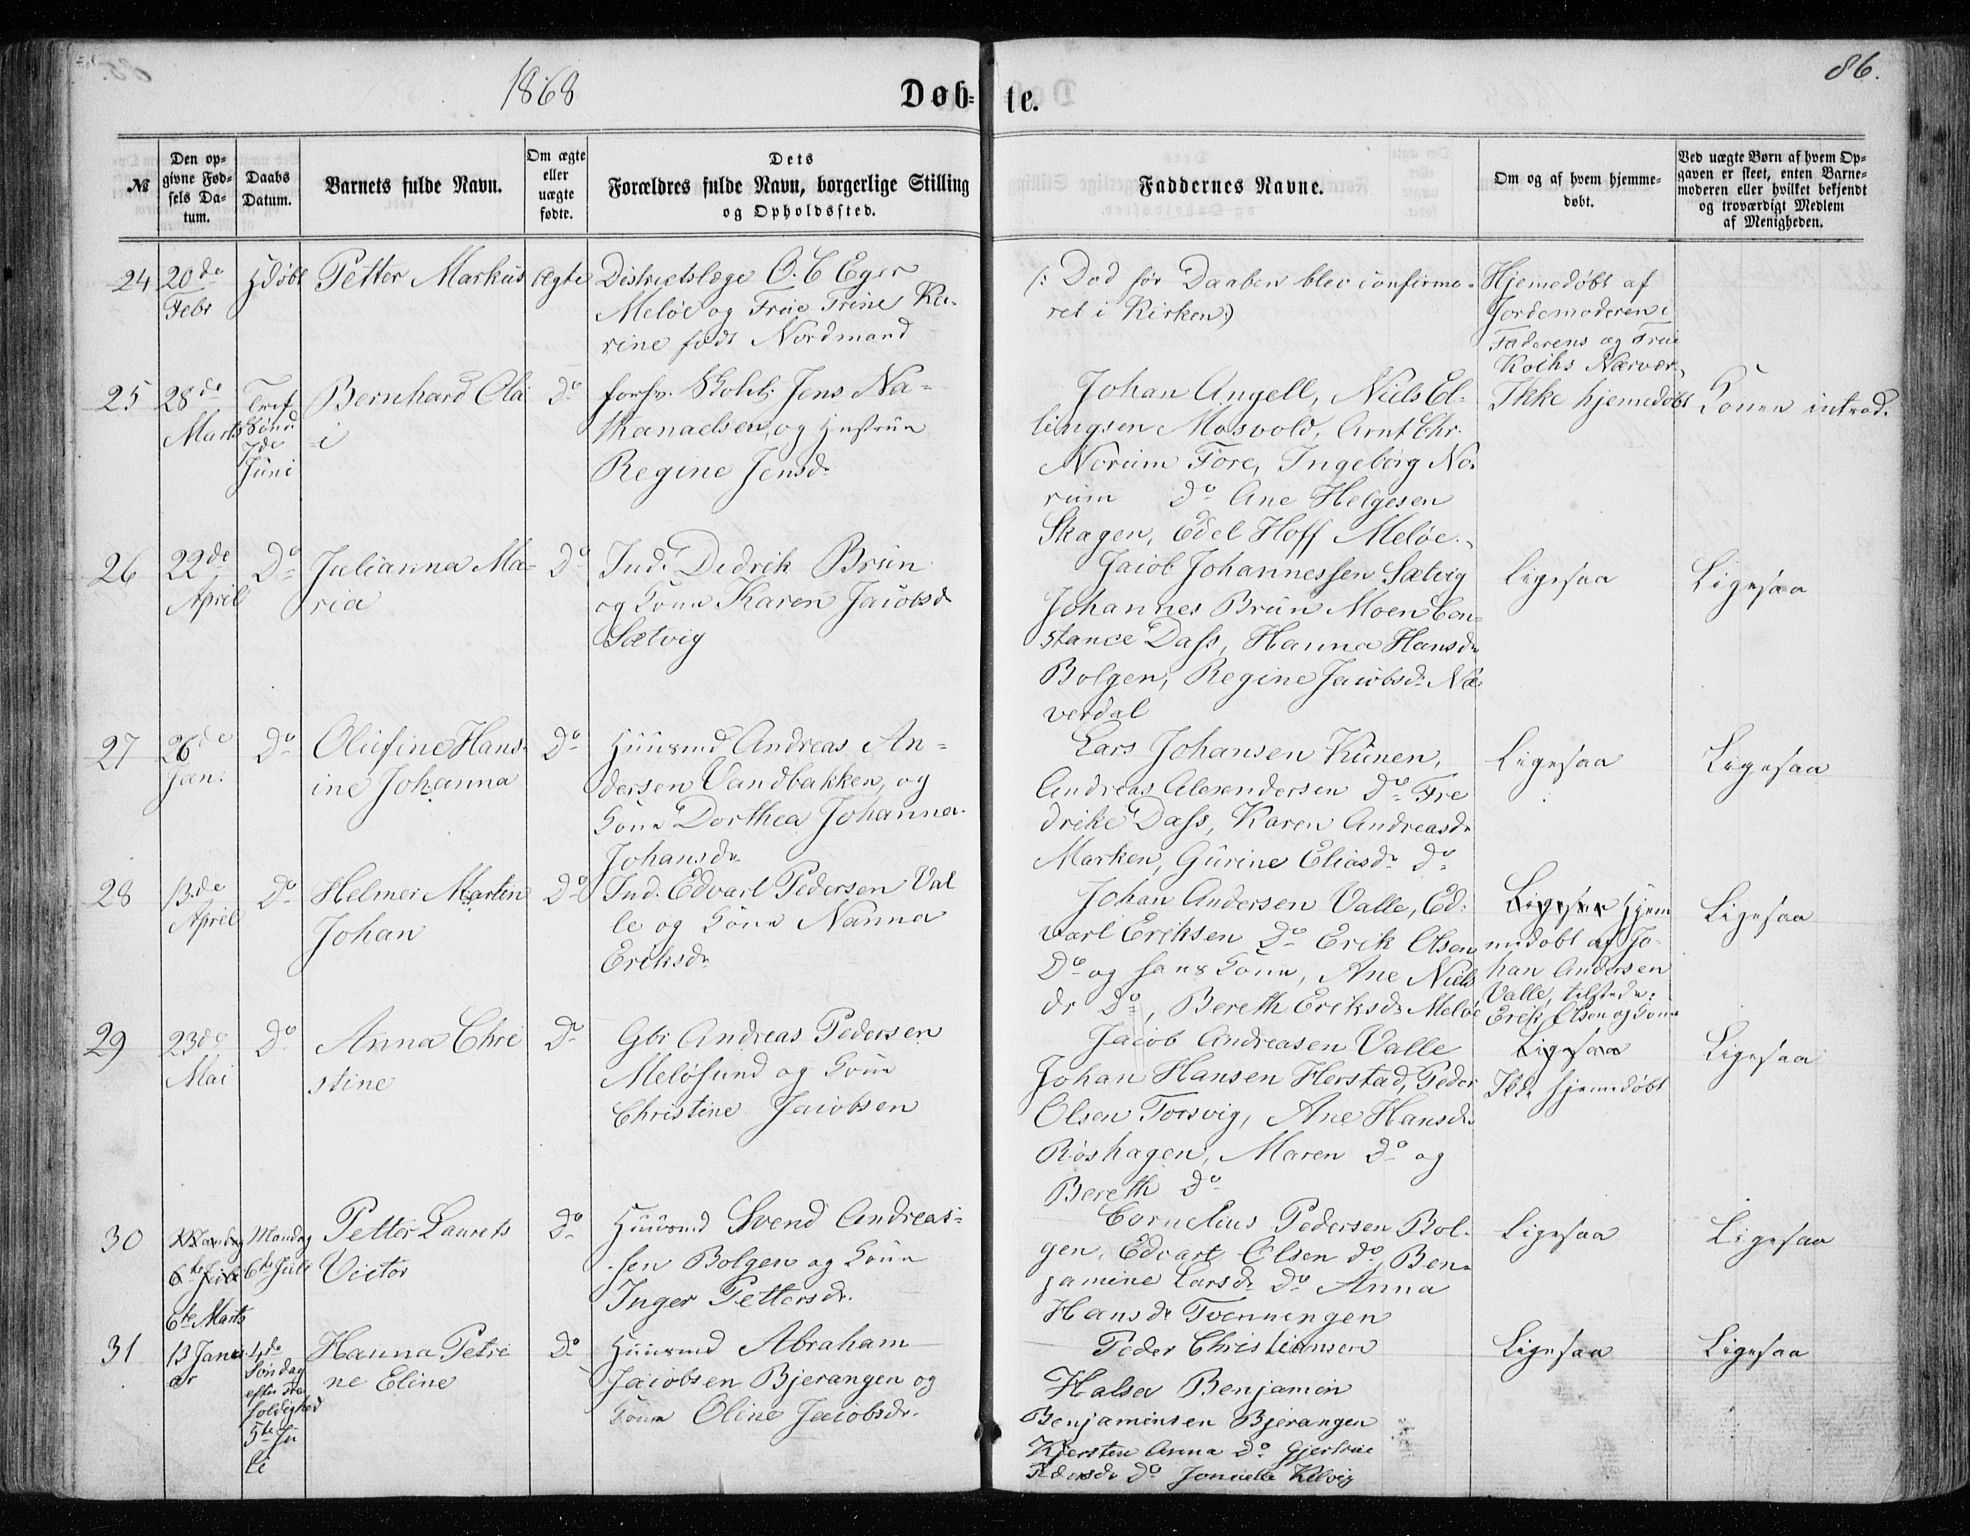 1868
Døb-
te.
86.
№
Den op-
givne Fød-
sels Da-
tum.
Daabs
Datum.
Barnets fulde Navn.
Om ægte
eller
uægte
fødte.
Dets
Forældres fulde Navn, borgerlige Stilling
og Opholdssted.
Faddernes Navne.
Om og af hvem hjemme-
døbt.
Ved uægte Børn af hvem Op-
gaven er skeet, enten Barne-
moderen eller hvilket bekjendt
og troværdigt Medlem
af Menigheden.
24
20de
Febr
Hdøbt
Petter Markus
Ægte
Districtslæge O. C Eger
Meløe og Frue Trine Ka-
rine født Nordmand
(: Død før Daaben blev confirme-
ret i Kirken:)
Hjemedøbt af
Jordemoderen i
Faderens og Frue
Kochs Nærvær.
25
28de
Marts
Tref
Sønd
7de
Juni
Bernhard Ola
i
Do
forhv. Skoleh. Jens Na-
thanaelsen, og Hustrue
Regine Jensdr
Johan Angell, Niels El-
lingsen Mosvold, Arnt Chr.
Norum Fore, Ingeborg No-
rum Do Ane Helgesen
Skagen, Edel Hoff Meløe.
Ikke hjemedøbt
Konen introd.
26
22de
April
Do
Julianna Ma-
ria
Do
Ind. Didrik Brun
og Kone Karen Jacobsd
Sætvig
Jacob Johannessen Sætvig
Johannes Brun Moen Con-
stance Dass, Hanna Hansdr
Bolgen, Regine Jacobsdr Næ-
verdal
Ligesaa
Ligesaa
27
26de
Jan:
Do
Olufine Hans-
ine Johanna
Do
Huusmd Andreas An-
dersen Vandbakken, og
Kone Dorthea Johanna
Johansdr
Lars Johansen Kunen,
Andreas Alexendersen Do Fre
drike Dass, Karen Andreasdr
Marken, Gurine Eliasdr do
Ligesaa
Ligesaa
28
13de
April
Do
Helmer Martin
Johan
Do
Ind. Edvart Pedersen Val
le og Kone Nanna
Eriksdr
Johan Andersen Valle, Ed-
vart Eriksen Do Erik Olsen
Do og hans Kone, Ane Niels
dr Do, Bereth Eriksdr Meløe
Ligesaa Hjem
medøbt af Jo-
han Andersen
Valle, tilstede:
Erik Olsen og Kone
Ligesaa
29
23de
Mai
Do
Anna Chri
stine
Do
Gbr Andreas Pedersen
Meløsund og Kone
Christine Jacobsen
Jacob Andreasen Valle
Johan Hansen Herstad, Peder
Olsen Torsvig, Ane Hansdr
Røshagen, Maren Do og
Bereth Do
Ligesaa
Ikke hjemedøbt
Ligesaa
30
6te Juli
6te Marts
Mandag
6te Juli
Petter Laurets
Victor
Do
Huusmd Svend Andreas-
sen Bolgen og Kone
Inger Pettersdr.
Cornelius Pedersen Bol-
gen, Edvart Olsen do, Ben-
jamine Larsdr Do Anna
Hansdr Tvenningen
Ligesaa
Ligesaa
31
13 Janu
ar
4de
Søndag
efter Tre
foldighed
5te Ju
li
Hanna Petri
ne Eline
Do
Huusmd Abraham
Jacobsen Bjerangen og
Kone Oline Jacobsdr.
Peder Christiansen
Halsa Benjamin
Benjaminsen Bjerangen
Kjersten Anna Do Gjertrue
Pedersdr Do
Ligesaa
Ligesaa